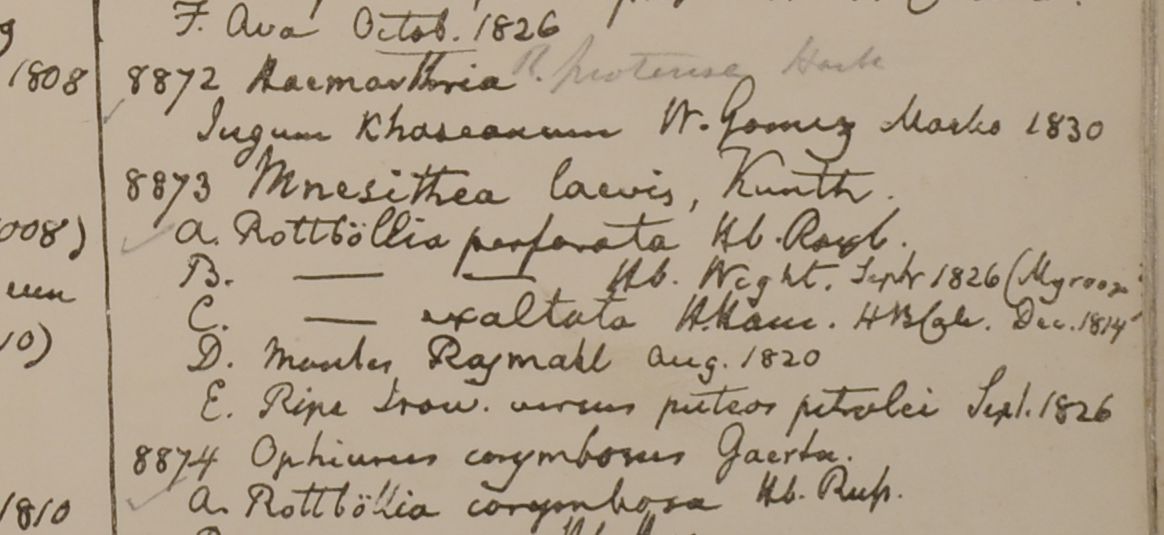 F. Ava Octob. 1826
1808
8872 Haemarthria R. protensa Hack
Jugum Khaseanum W. Gomez March 1830
8873 Mnesithea laevis, Kunth.
008)
a. Rottböllia perforata Hb. Roxb.
B. — — Hb. Wight. Septr 1826
C. — exaltata H. Ham. HBCalc. Dec. 1814
10)
D. Montes Rajmahl Aug. 1820
E. Ripa Iraw. versus puteos petrolei Sept. 1826
8874 Ophiurus corymbosus Gaertn.
1810
a. Rottböllia corymbosa Hb.